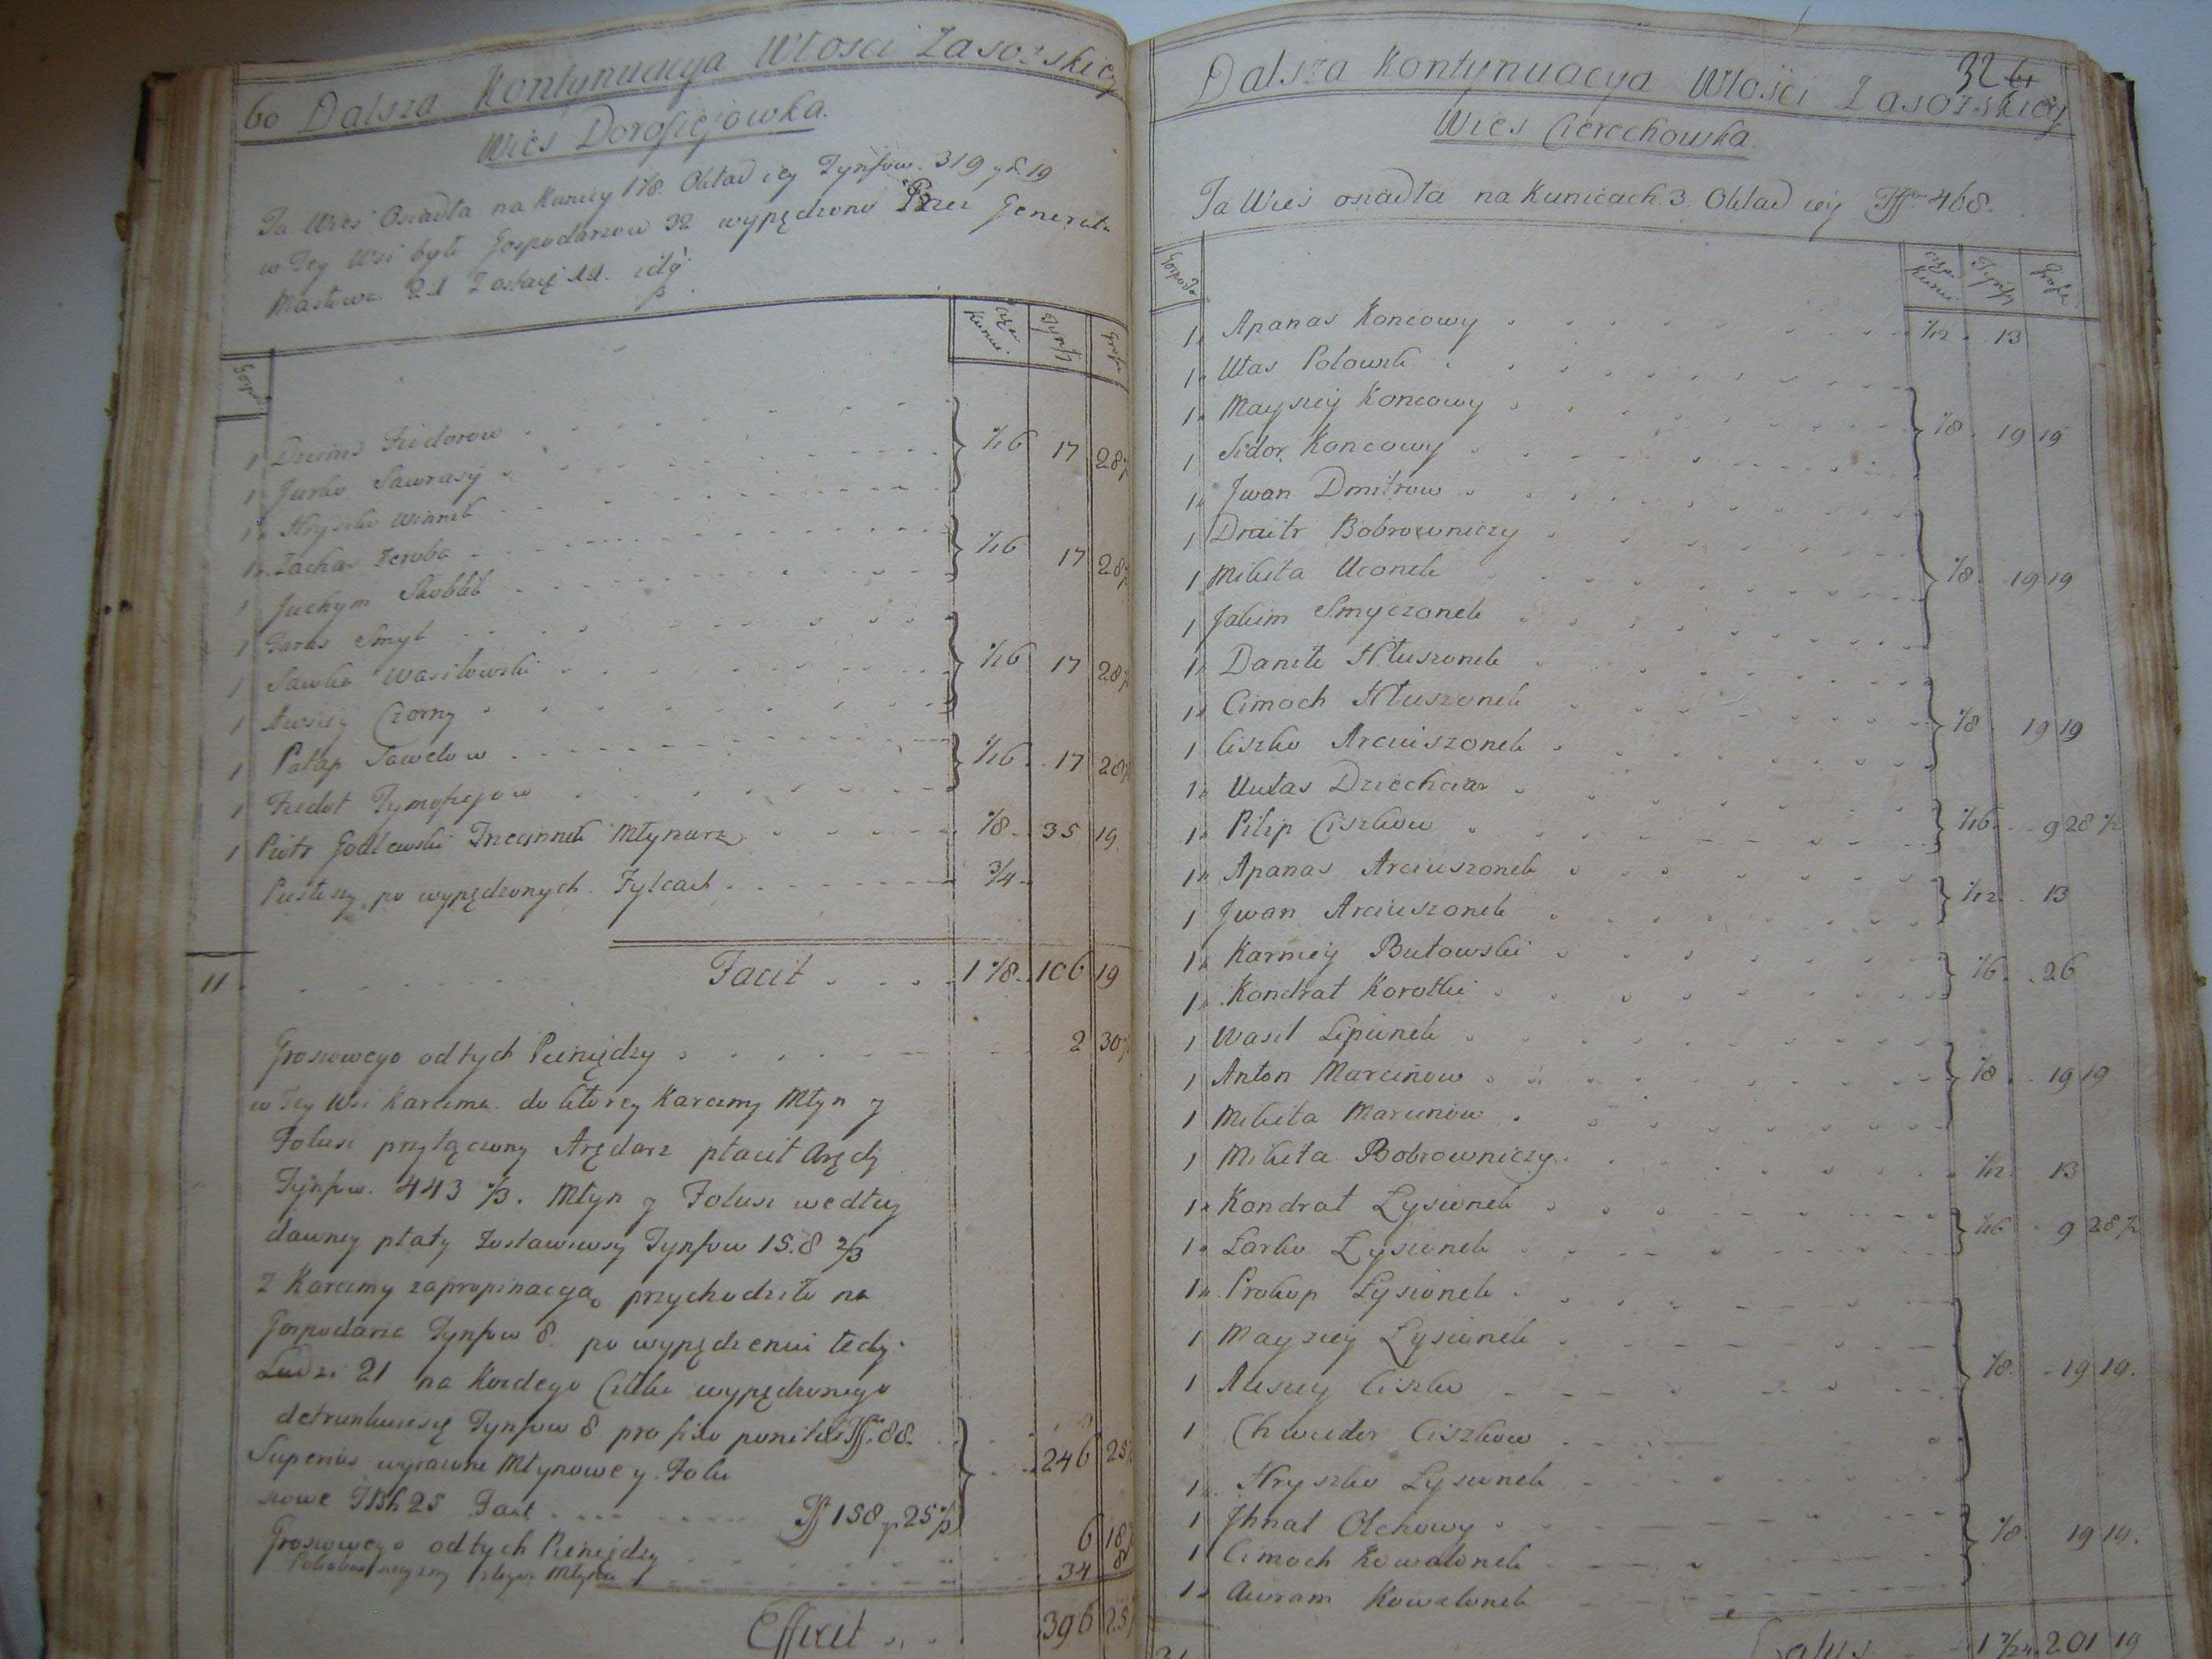 60 Dalsza Kontynuacya Włosci Zasożskiey
Wies Dorofiejowka.
Ta Wies Osiadła na Kunicy 1 1/8. Okład iey Tynfow. 319 gr. 19
w Tey Wsi było Gospodarzow 32 wypędzono Przez Generała
Masłowa 21 Zostaię 11.
Gospod
Kunic. Tynfy Grosze
1 Fiedorow
1 Jurko Sawrasy } 1/16 17 28
1 Hryszko Winnik
1 Zachar } 1/16 17 28
1 Juchym
1 Taras Smyk } 1/16 17 28
1 Sawka Wasilowski
1 Awsiey Czorny } 1/16 17 28
1 Patap Pawełow
1 Fiedot Tymofiejow
1 Piotr Młynarz 1/8 35 19
Pustoszy po wypędzonych 3/4
11 Facit 1 1/8 106 19
Groszowego od tych Pieniędzy 2 30
w Tey Wsi Karczma do ktorey Karczmy Młyn y
Folusz przyłączony Arędarz płacił Arędy
Tynfow. 443 1/3. Młyn y Folusz według
dawney płaty Zostawiwszy Tynfow 158 2/3
z Karczmy za propinacyą przychodziło na
Gospodarza Tynfow 8. po wypędzeniu tedy
Ludzi 21 na Kożdego wypędzonego
Tynfow 8 pro fixo 88.
Superius wyrażone Młynowe y Folu
szowe 25 158 gr 25 1/2 } 246 25
Groszowego od tych Pieniędzy 6 18
Młyna 34 8
Efficit 396 25
Dalsza Kontynuacya Włosci Zasożskiey
32 61
Wies Cierechowka.
Ta Wies osiadła na Kunicach 3. Okład iey 468.
Gospoda
Kunic. Tynfy Grosze
1 Apanas Koncowy 1/12 13
1 Ułas Polowik
1 Maysiey Koncowy
1 Sidor Koncowy } 1/8 19 19
1 Jwan Dmitrow
1 Dmitr Bobrowniczy
1 Mikita Uconek } 1/8 19 19
1 Jakim Smyczonek
1 Daniło Hłuszonek
1 Cimoch Hłuszonek
1 Ciszko Arciuszonek } 1/8 19 19
1 Dziechciar
1 Pilip Ciszkow } 1/16 9 28 1/2
1 Apanas Arciuszonek
1 Jwan Arciuszonek } 1/12 13
1 Karniey Butowski
1 Kondrat Korotki } 1/6 26
1 Wasil Lipunek
1 Anton Marcinow } 1/8 19 19
1 Mikita Marcinow
1 Mikita Bobrowniczy 1/12 13
1 Kondrat Łysionek } 1/16 9 28 1/2
1 Łarko Łysionek
1 Prokop Łysionek
1 Maysiey Łysionek
1 Auseey Ciszko } 1/8 19 19.
1 Chwieder Ciszkow
1 Hryszko Łysionek
1 Jhnat Olchowy
1 Cimoch Kowalonek } 1/8 19 19.
1 Auram Kowalonek
31 Latus 1 7/24 201 19